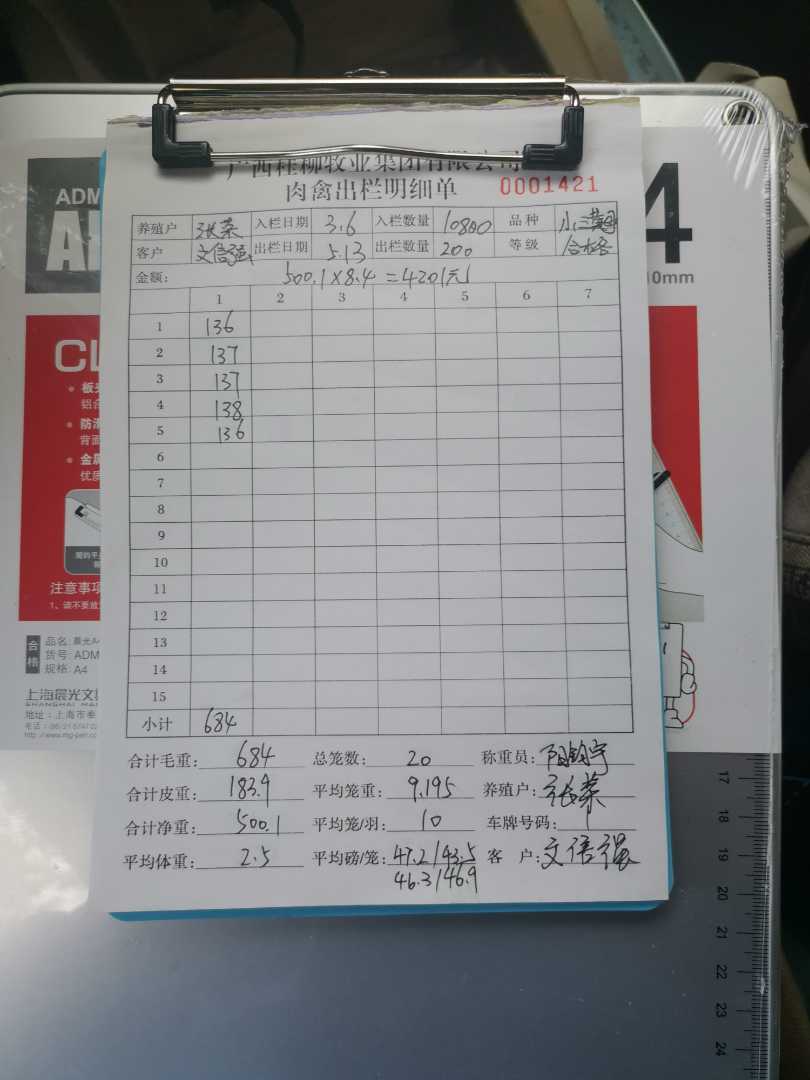 广西桂柳牧业集团有限公司
肉禽出栏明细单 0001421
养殖户 张荣 入栏日期 3.6 入栏数量 10800 品种
客户 文信强 出栏日期 5.13 出栏数量 200 等级 合格
金额: 500.1×8.4=4201元
1 2 3 4 5 6 7
1 136
2 137
3 137
4 138
5 136
6
7
8
9
10
11
12
13
14
15
小计 684
合计毛重: 684 总笼数: 20 称重员:
合计皮重: 183.9 平均笼重: 9.195 养殖户: 张荣
合计净重: 500.1 平均笼/羽: 10 车牌号码: /
平均体重: 2.5 平均磅/笼: 47.2/43.5 客 户: 文信强
46.3/46.9
ADM
4
10mm
CL
注意事项
合格
品名: 晨光A4
货号: ADM
规格: A4
上海晨光文
地址: 上海市奉
17
18
19
20
21
22
23
24